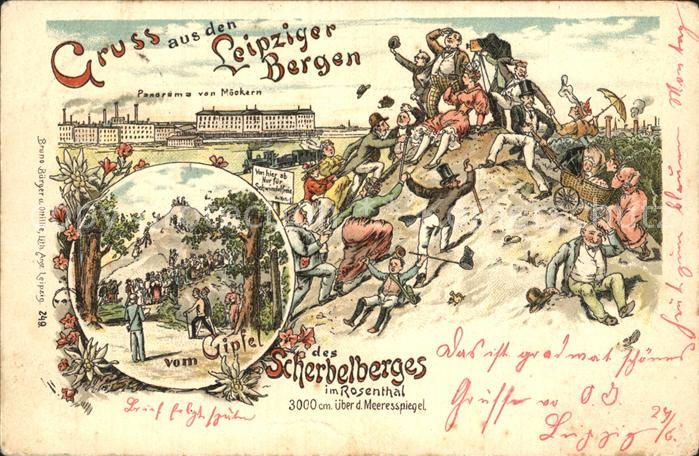 Gruss aus den
Leipziger
Bergen
Panorama von Möckern
Von hier ab
nur für
Schwindelfreie
Bruno Bürger u. Ottillie, Lith. Anst. Leipzig. 249
vom Gipfel
des
Scherbelberges
im Rosenthal
3000 cm. über d. Meeresspiegel.
Das ist gradwat schönes
Grüsse
Leipzig 24/6.
Brief folgt später